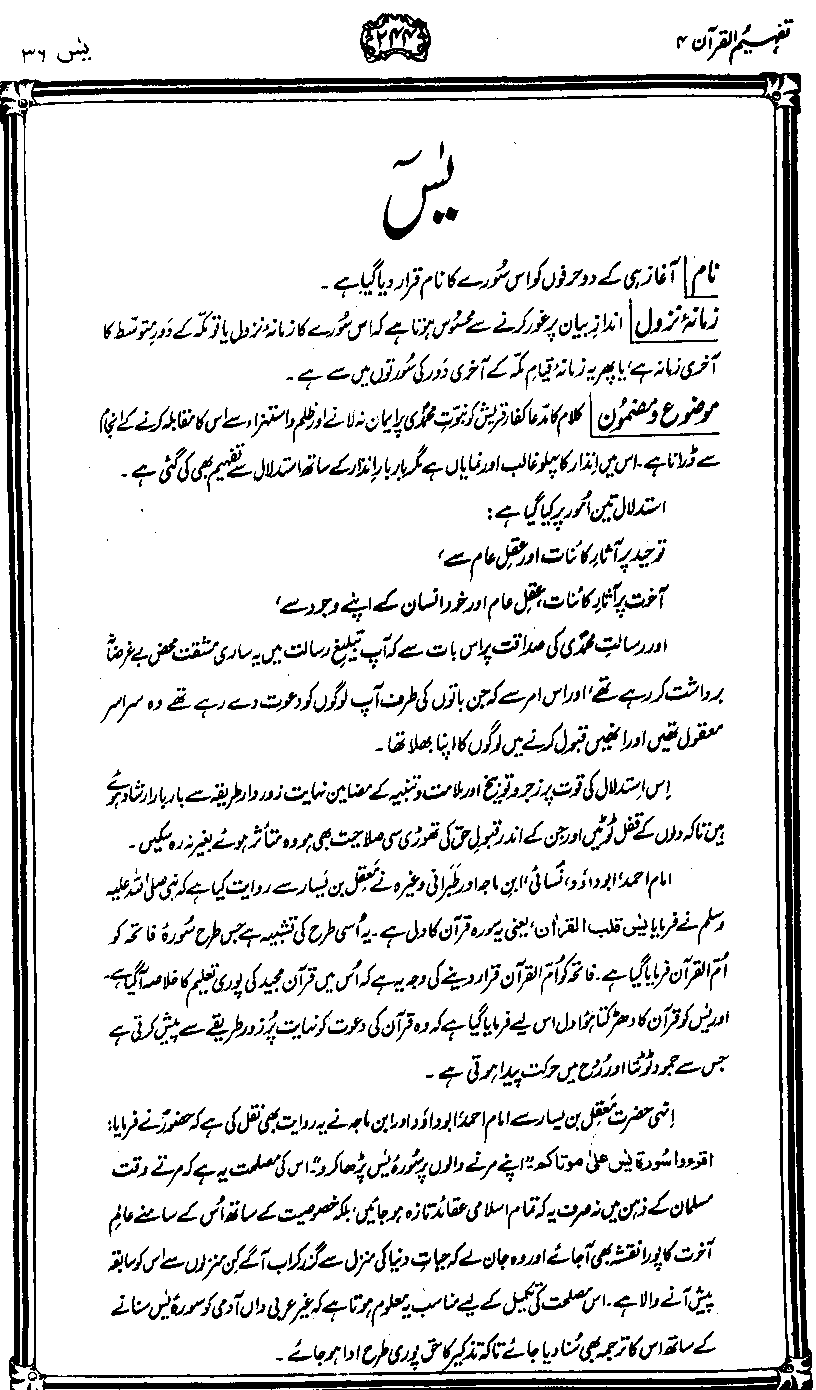 تفہیم القرآن ۴
۲۴۴
یٰس ۳۶
یٰسٓ
نام آغاز ہی کے دو حرفوں کو اس سُورے کا نام قرار دیا گیا ہے۔
زمانۂ نزول اندازِ بیان پر غور کرنے سے محسُوس ہوتا ہے کہ اس سُورے کا زمانۂ نزول یا تو مکّہ کے دَورِ متوسّط کا
آخری زمانہ ہے، یا پھر یہ زمانۂ قیامِ مکّہ کے آخری دَور کی سُورتوں میں سے ہے۔
موضوع و مضمُون کلام کا مدّعا کفارِ قریش کو نبوّتِ محمّدی پر ایمان نہ لانے اور ظلم و استہزاء سے اس کا مقابلہ کرنے کے انجام
سے ڈرانا ہے۔ اس میں اِنذار کا پہلو غالب اور نمایاں ہے مگر بار بار اِنذار کے ساتھ استدلال سے تفہیم بھی کی گئی ہے۔
استدلال تین اُمور پر کیا گیا ہے:
توحید پر آثارِ کائنات اور عقلِ عام سے،
آخرت پر آثارِ کائنات، عقلِ عام اور خود انسان کے اپنے وجود سے،
اور رسالتِ محمّدی کی صداقت پر اس بات سے کہ آپ تبلیغِ رسالت میں یہ ساری مشقت محض بے غرضانہ
برداشت کر رہے تھے، اور اس امر سے کہ جن باتوں کی طرف آپ لوگوں کو دعوت دے رہے تھے وہ سراسر
معقول تھیں اور انھیں قبول کرنے میں لوگوں کا اپنا بھلا تھا۔
اِس استدلال کی قوت پر زجر و توبیخ اور ملامت و تنبیہ کے مضامین نہایت زور دار طریقہ سے بار بار ارشاد ہوئے
ہیں تاکہ دلوں کے قفل ٹوٹیں اور جن کے اندر قبولِ حق کی تھوڑی سی صلاحیت بھی ہو وہ متأثر ہوئے بغیر نہ رہ سکیں۔
امام احمد، ابوداؤد، نَسائی، ابن ماجہ اور طَبَرانی وغیرہ نے مَعقِل بن یَسار سے روایت کیا ہے کہ نبی صلی اللہ علیہ
وسلم نے فرمایا یٰس قلب القراٰن، یعنی یہ سورہ قرآن کا دل ہے۔ یہ اُسی طرح کی تشبیہ ہے جس طرح سُورۂ فاتحہ کو
اُمّ القرآن فرمایا گیا ہے۔ فاتحہ کو اُمّ القرآن قرار دینے کی وجہ یہ ہے کہ اُس میں قرآن مجید کی پوری تعلیم کا خلاصہ آگیا ہے۔
اور یٰس کو قرآن کا دھڑکتا ہوا دل اس لیے فرمایا گیا ہے کہ وہ قرآن کی دعوت کو نہایت پُر زور طریقے سے پیش کرتی ہے
جس سے جمود ٹوٹتا اور رُوح میں حرکت پیدا ہوتی ہے۔
اِنہی حضرت مَعقِل بن یسار سے امام احمد، ابوداؤد اور ابن ماجہ نے یہ روایت بھی نقل کی ہے کہ حضورؐ نے فرمایا:
اقرءوا سُورۃ یٰس علیٰ موتاکم۔ "اپنے مرنے والوں پر سُورۂ یٰس پڑھا کرو"۔ اس کی مصلحت یہ ہے کہ مرتے وقت
مسلمان کے ذہن میں نہ صرف یہ کہ تمام اسلامی عقائد تازہ ہو جائیں، بلکہ خصوصیت کے ساتھ اُس کے سامنے عالمِ
آخرت کا پورا نقشہ بھی آجائے اور وہ جان لے کہ حیاتِ دنیا کی منزل سے گزر کر اب آگے کِن منزلوں سے اس کو سابقہ
پیش آنے والا ہے۔ اس مصلحت کی تکمیل کے لیے مناسب یہ معلوم ہوتا ہے کہ غیر عربی داں آدمی کو سورۂ یٰس سنانے
کے ساتھ اس کا ترجمہ بھی سُنا دیا جائے تاکہ تذکیر کا حق پوری طرح ادا ہو جائے۔